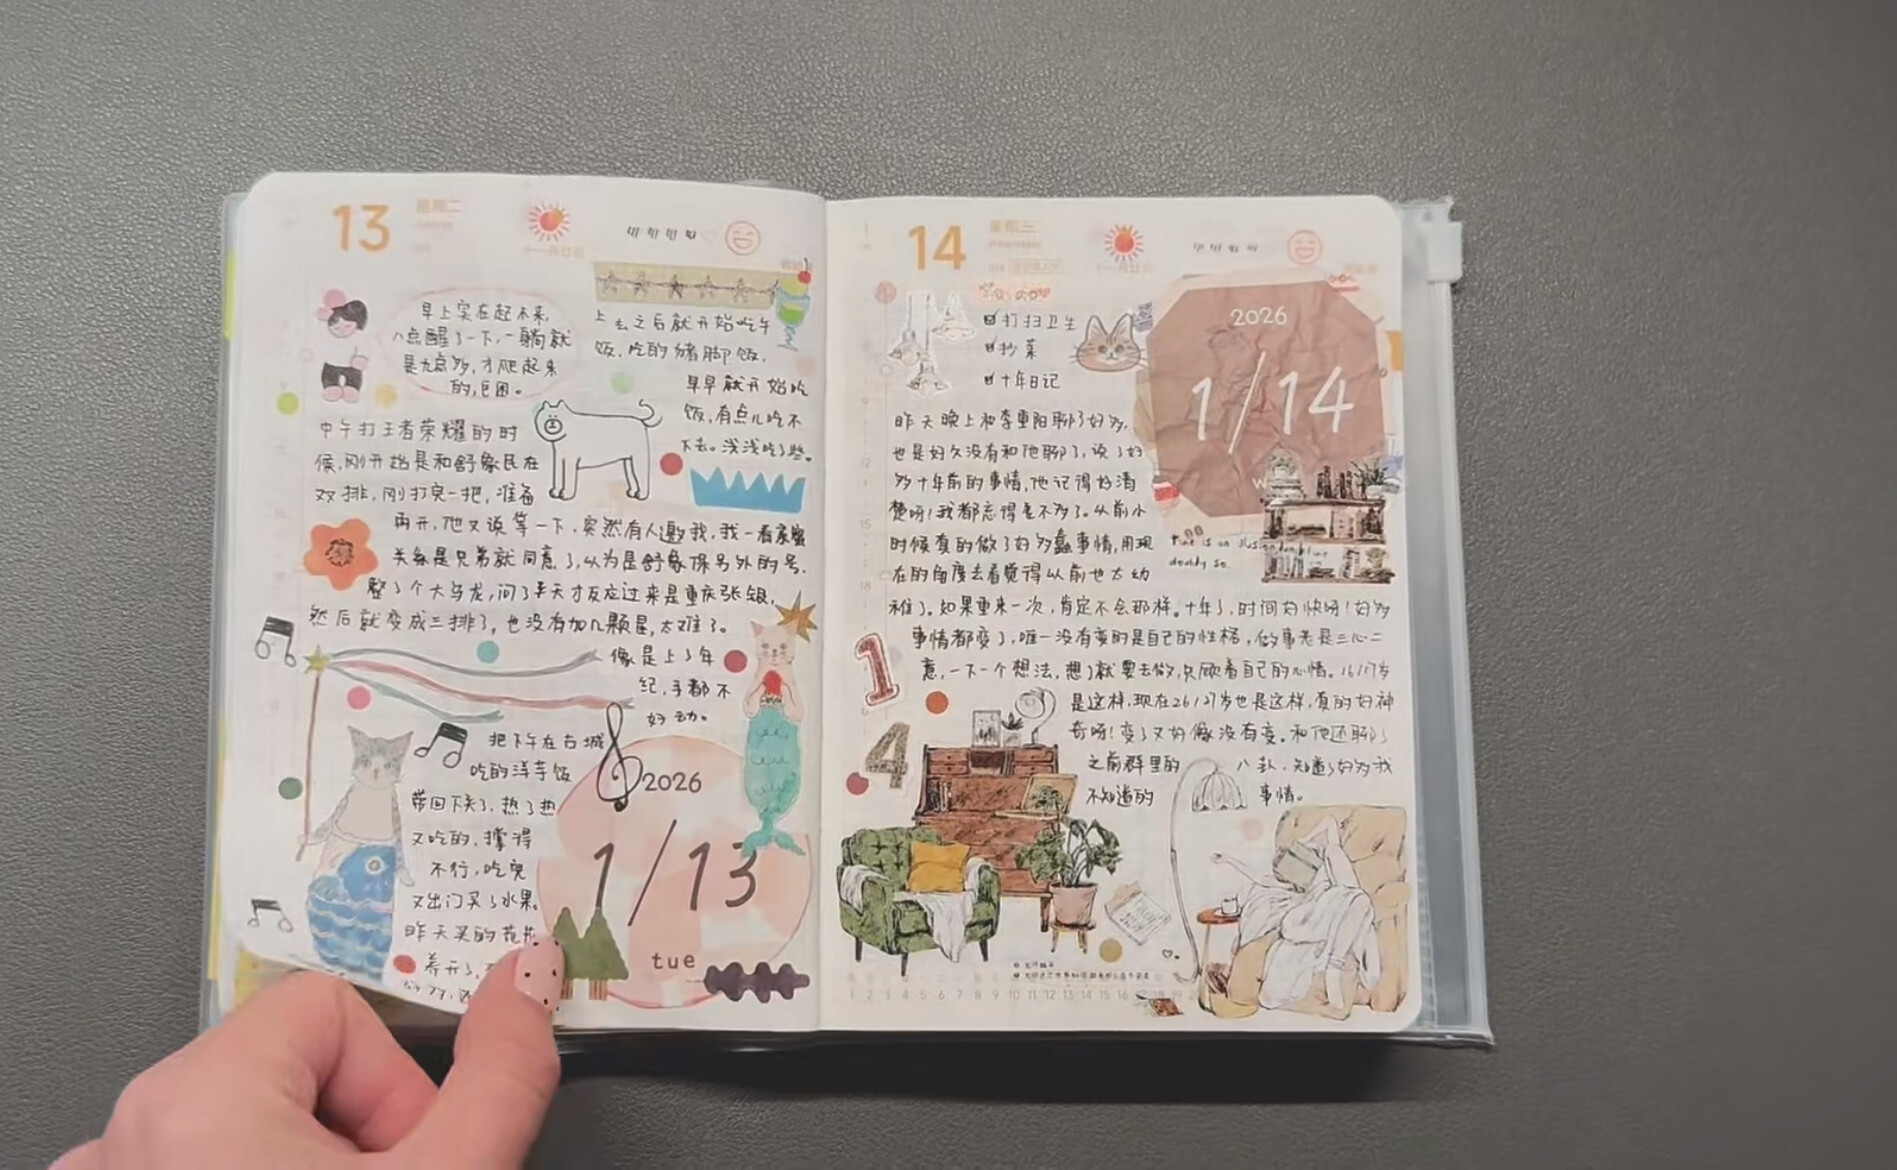 13
星期二
早上实在起不来,
八点醒了一下,一躺就
是九点多,才爬起来
的,巨困。
上去之后就开始吃午
饭,吃的猪脚饭,
早早就开始吃
饭,有点儿吃不
下去。浅浅吃了些。
中午打王者荣耀的时
候,刚开始是和舒象民在
双排,刚打完一把,准备
再开,他又说等一下,突然有人邀我,我一看亲密
关系是兄弟就同意了,以为是舒象保另外的号,
整了个大乌龙,问了半天才反应过来是重庆张银,
然后就变成三排了,也没有加几颗星,太难了。
像是上了年
纪,手都不
好动。
把下午在古城
吃的洋芋饭
带回下关了,热了热
又吃的,撑得
不行,吃完
又出门买了水果。
昨天买的花
养开了,
2026
1/13
tue
14
星期三
2026
1/14
打扫卫生
抄菜
十年日记
昨天晚上和李重阳聊了好多,
也是好久没有和他聊了,说了好
多十年前的事情,他记得好清
楚呀!我都忘得差不多了。从前小
时候真的做了好多蠢事情,用现
在的角度去看觉得以前也太幼
稚了。如果重来一次,肯定不会那样。十年了,时间好快呀!好多
事情都变了,唯一没有变的是自己的性格,做事老是三心二
意,一下一个想法,想了就要去做,只顾着自己的心情。16/17岁
是这样,现在26/27岁也是这样,真的好神
奇呀!变了又好像没有变。和他还聊了
之前群里的八卦,知道了好多我
不知道的事情。
Time is an illusion
doubly so.
1
4
1 2 3 4 5 6 7 8 9 10 11 12 13 14 15 16 17 18 19